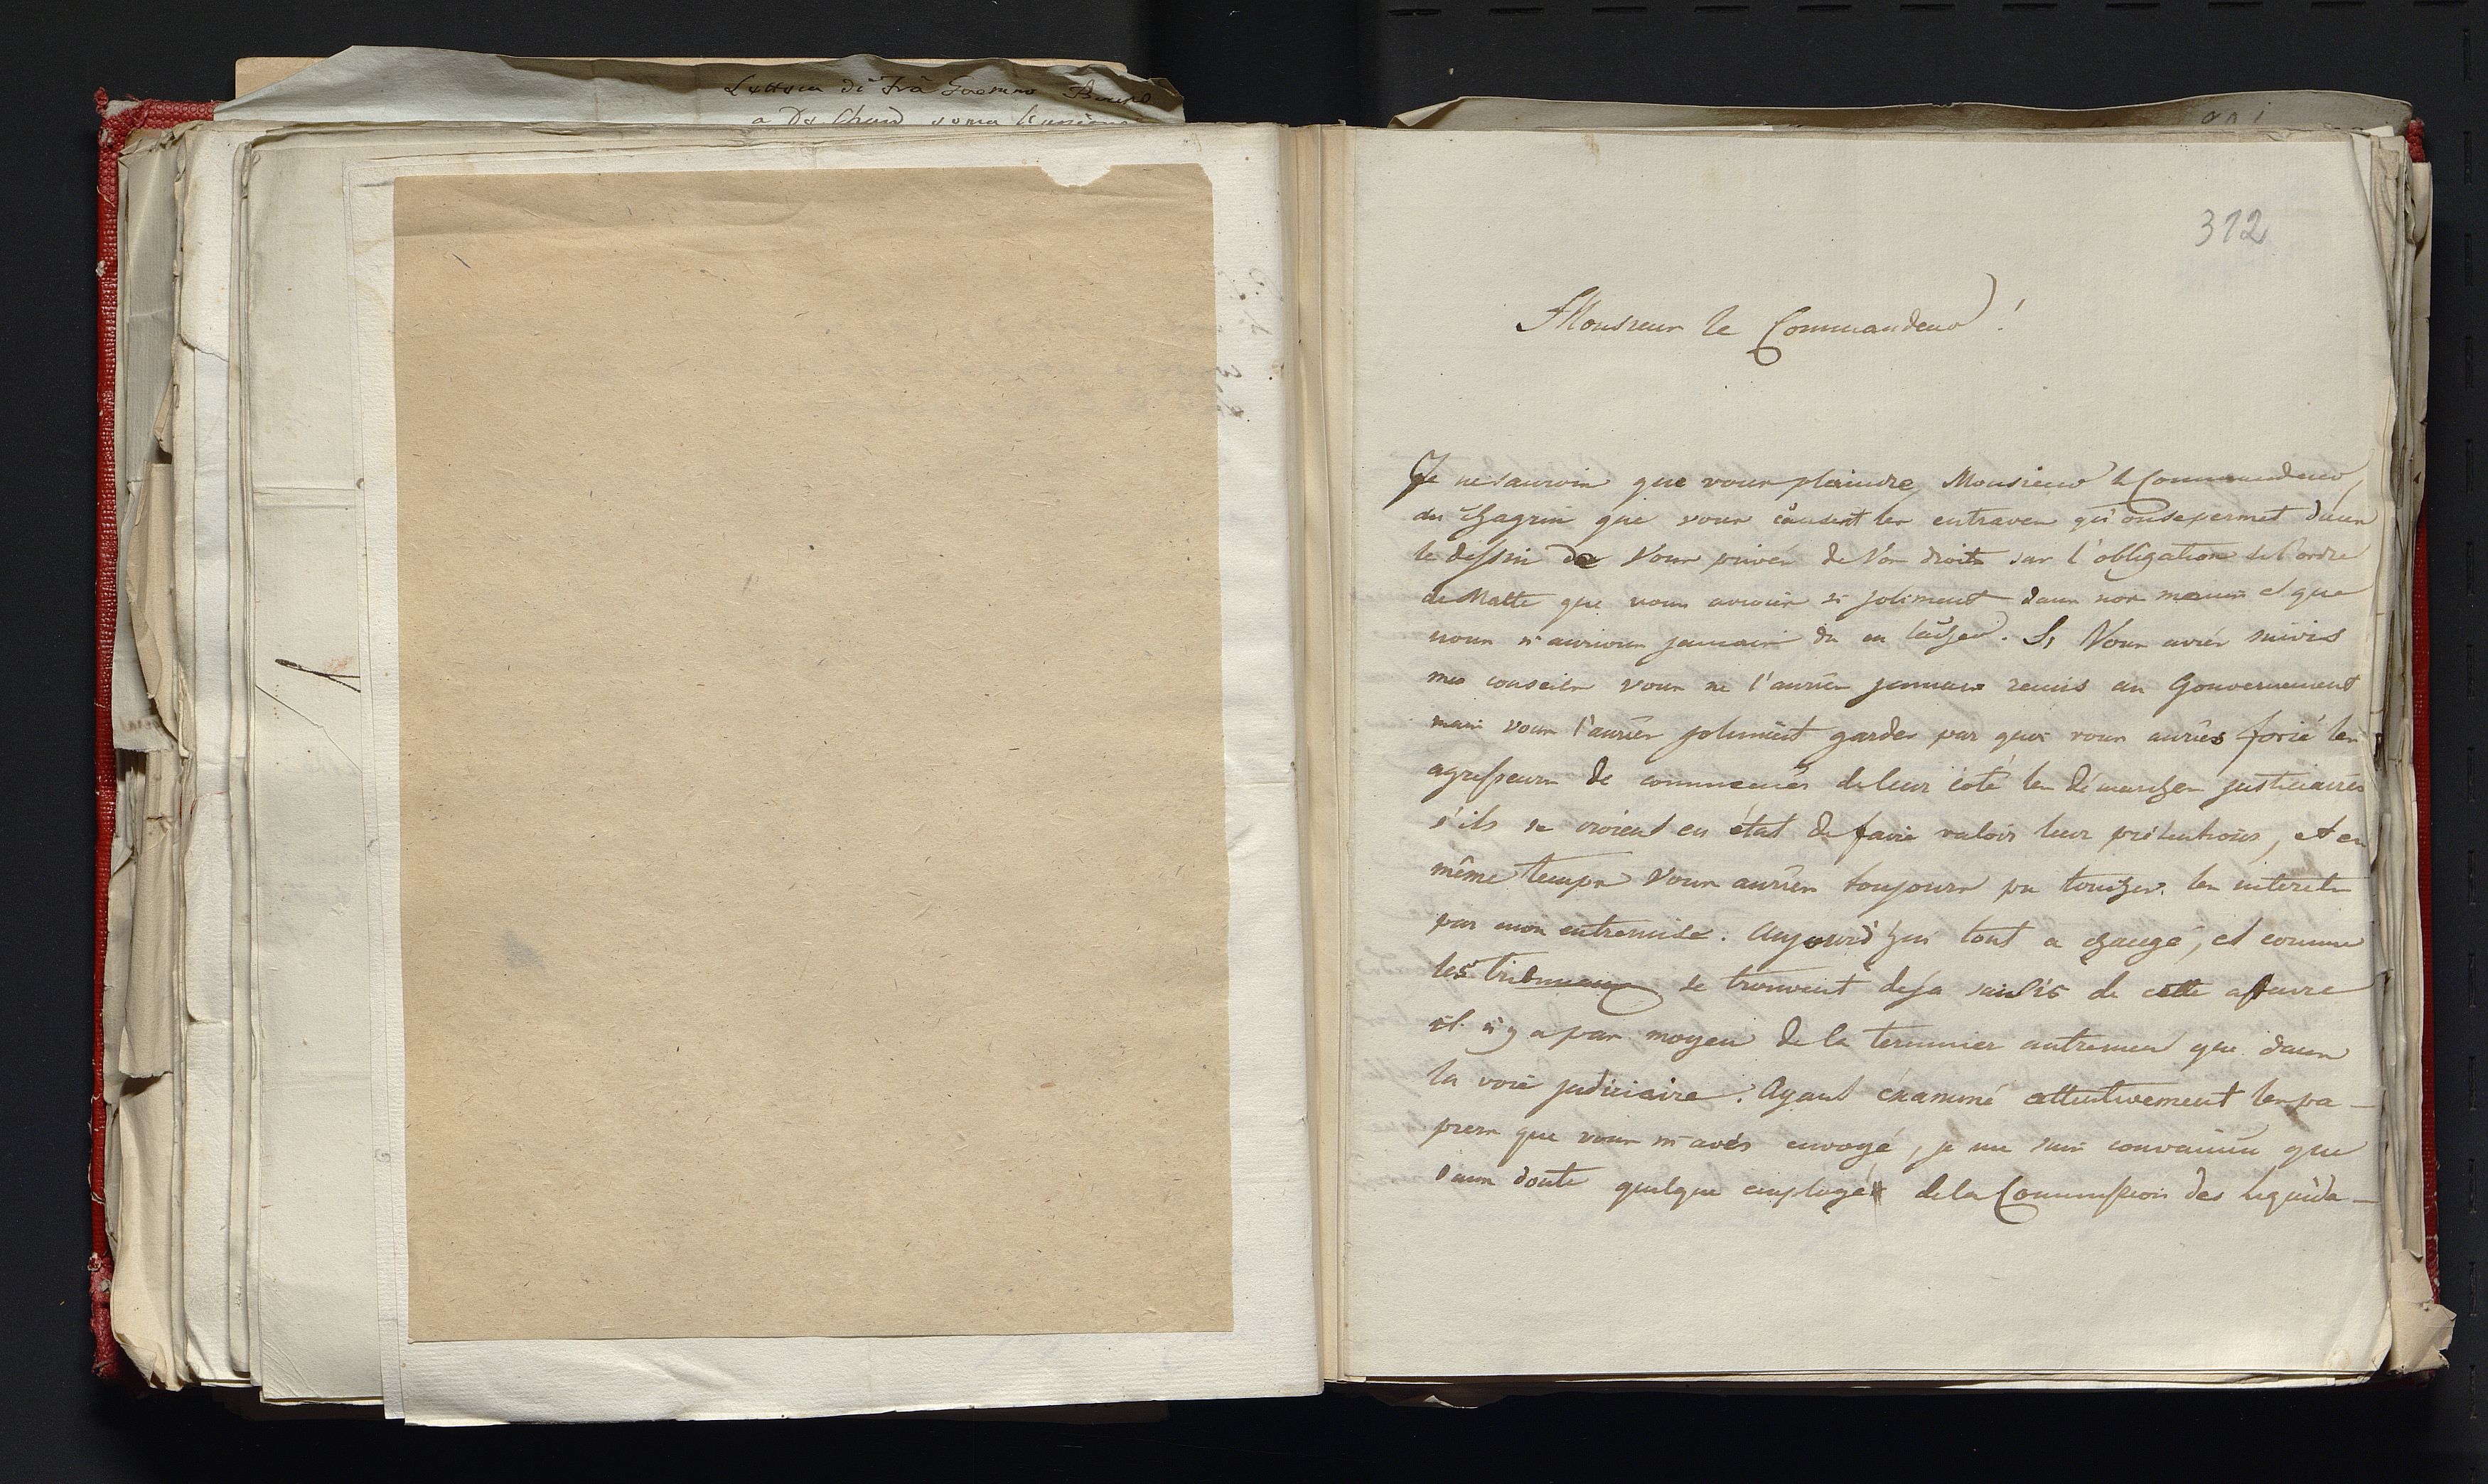 Lettera di Frà
a De
312
Monsieur le Commandeur !
Je ne saurois que vous plaindre, Monsieur le Commandeur,
du chagrin que vous causent les entraves qu'on se permet dans
le dessin de Vous privér de Vos droits sur l'obligation de l'ordre
de Malte que vous aviéz si joliment dans vos mains et que
nous n'aurions jamais du en lacher. Si Vous aviés suivis
mes conseils vous ne l'auriés jamais remis au Gouvernement
mais vous l'auriés joliment gardér par quoi vous auriés forcé les
agresseurs de commencér de leur coté les démarches justiciaires
s'ils se croient en état de faire valoir leur prétentions, et en
même temps Vous auriés toujours pu toucher les interets
par mon entremise. Aujourd'hui tout a changé, et comme
les tribunaux se trouvent déja saisis de cette affaire
il n'y a pas moyen de la terminer autrement que dans
la voie judiciaire. Ayant examiné attentivement les pa-
piers que vous m'avés envoyé, je me suis convaincu que
sans doute quelque employé de la Commission des Liquida-